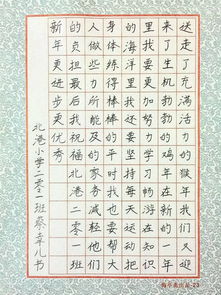 送走了充满活力的猴年我们又迎
来了生机勃勃的鸡年在新的一年
里我要更加努力学习畅游在知识
的海洋里还要坚持每天运动把
身体练得棒棒的平时我也要帮大
人做些力所能及的家务减轻他们
的负担最后我祝福北港二零一班
新年更进步更优秀
北港小学二零一班蔡幸儿书